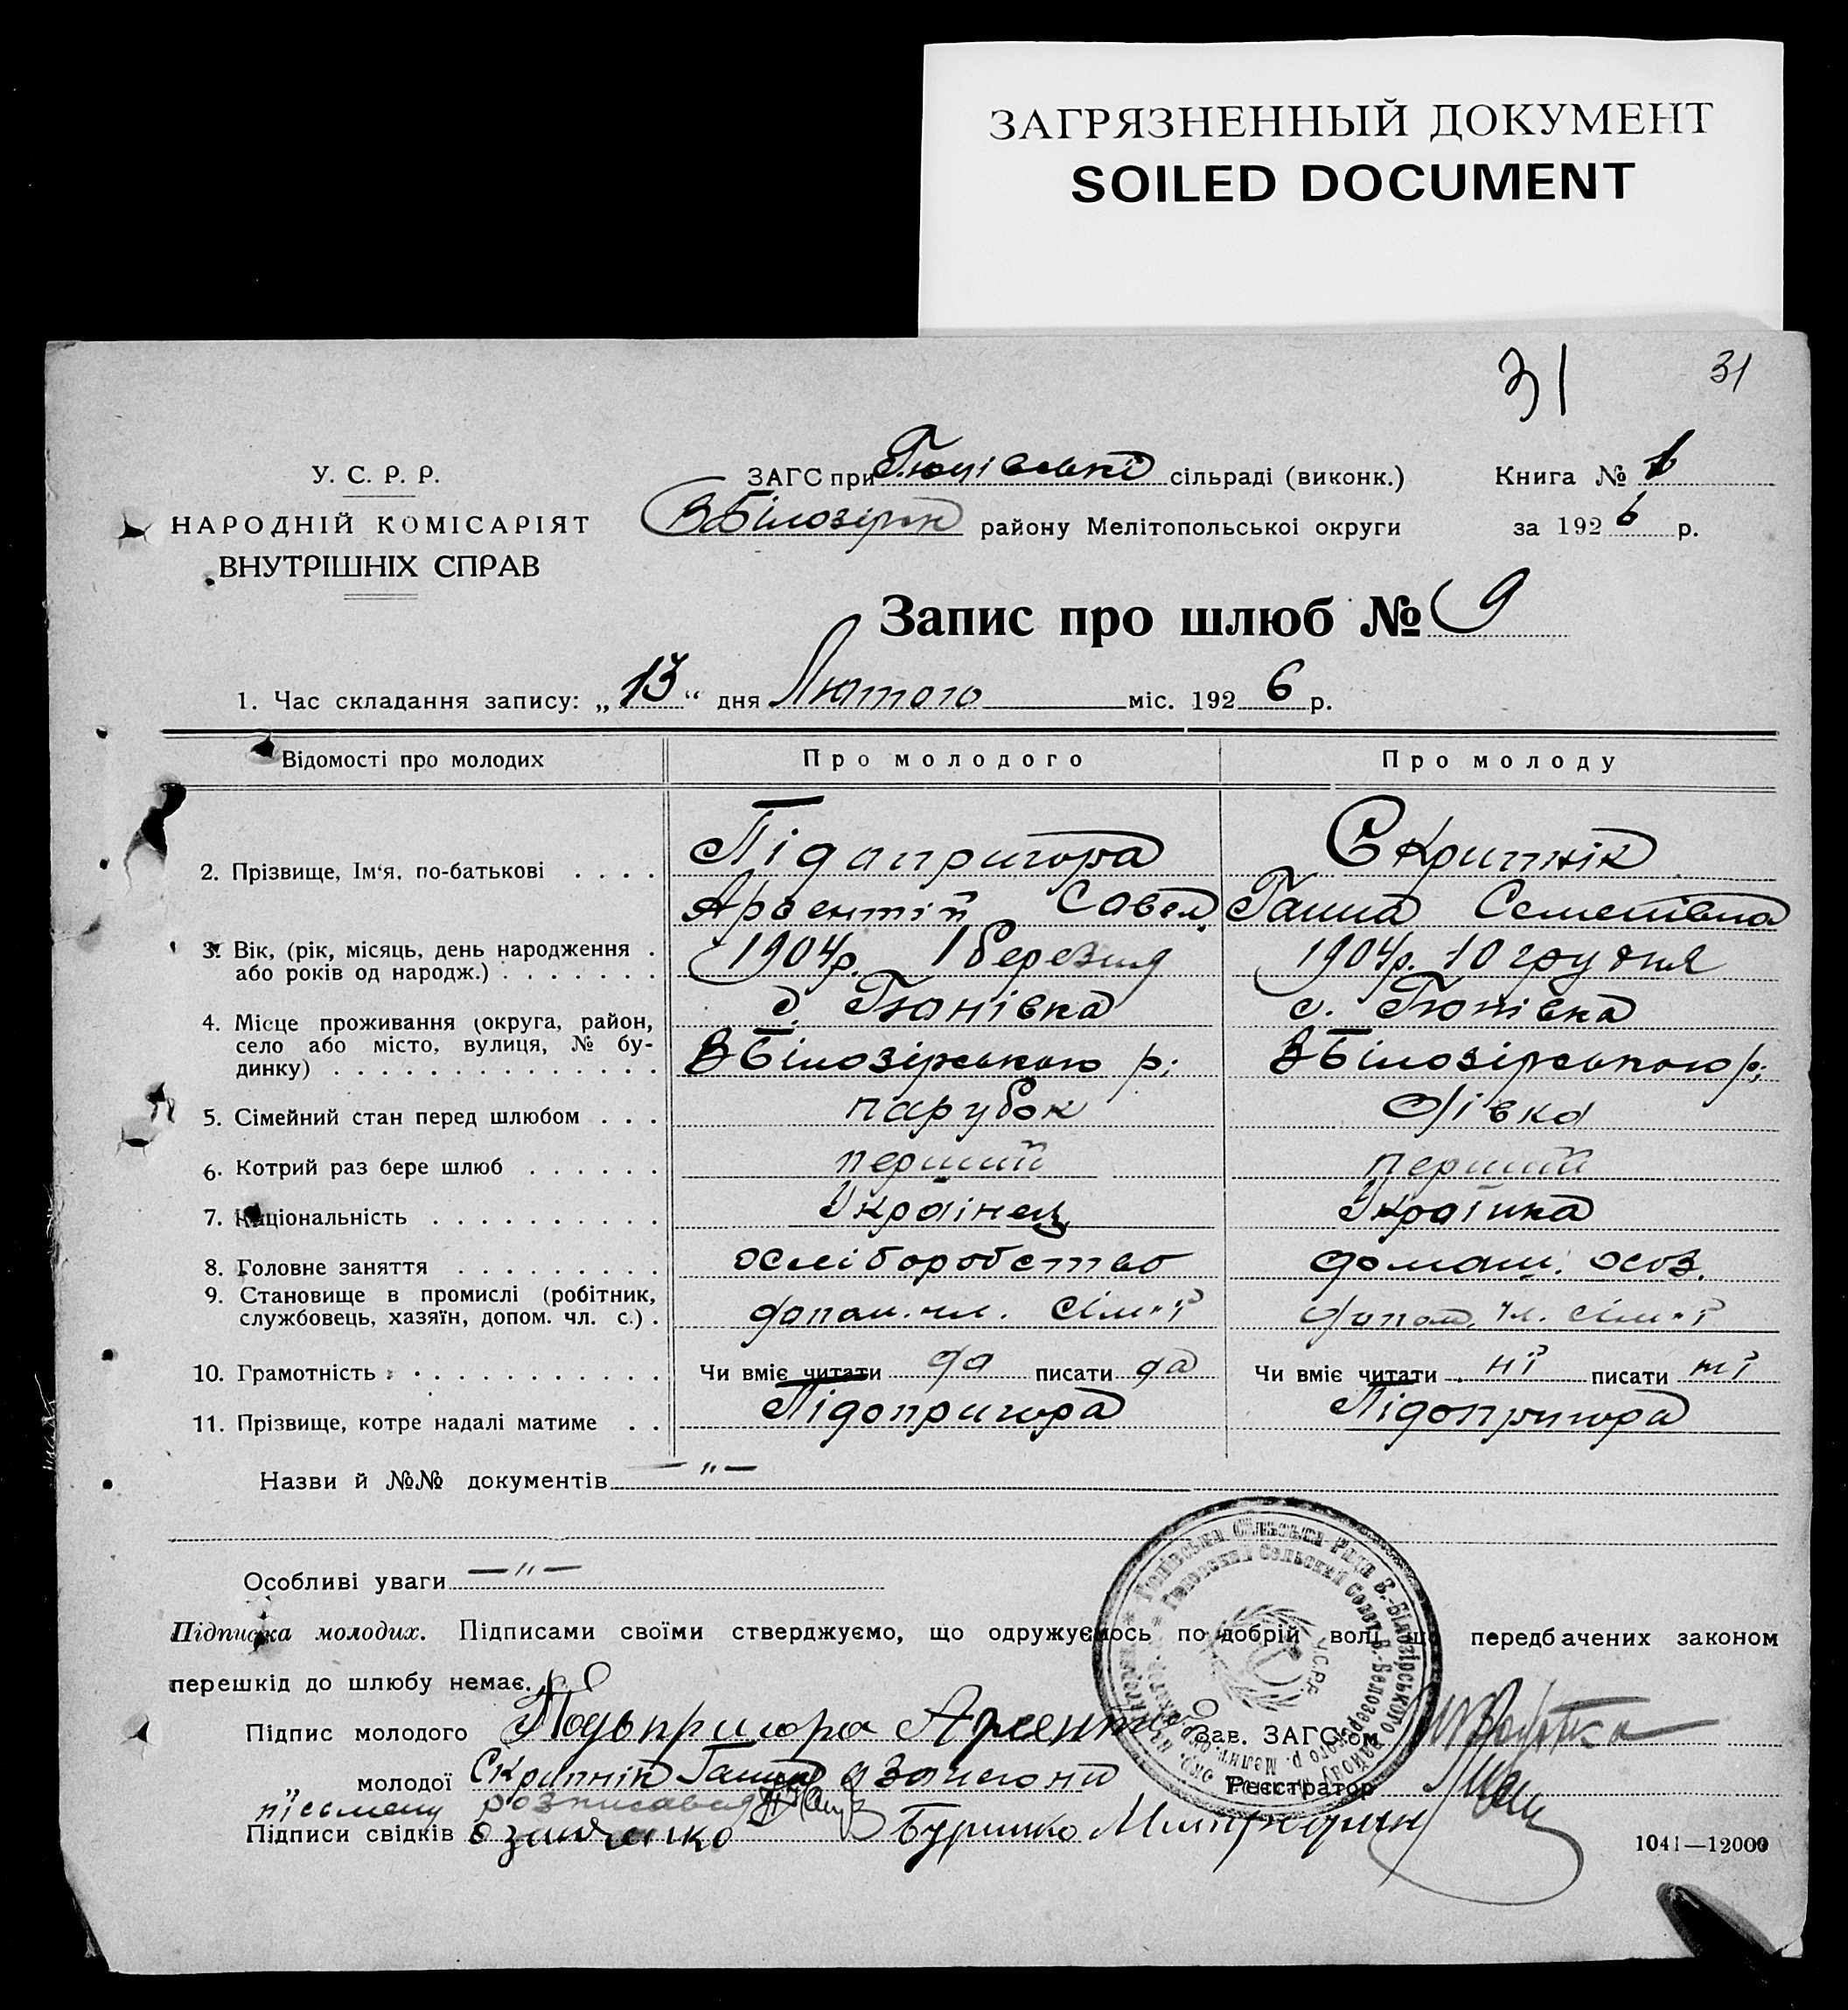 ЗАГРЯЗНЕННЫЙ ДОКУМЕНТ
SOILED DOCUMENT
31 31
У. С. Р. Р.
НАРОДНІЙ КОМІСАРІЯТ
ВНУТРІШНІХ СПРАВ
ЗАГС при Гюнівській сільраді (виконк.)
В Білозірск району Мелітопольської округи
Книга № 1
за 1926 р.
Запис про шлюб № 9
1. Час складання запису: „13“ дня Лютого міс. 1926 р.
Відомості про молодих Про молодого Про молоду
2. Прізвище, Ім‘я, по-батькові . . . . Підопригора Скрипнік
Арсентій Савел. Ганна Семенівна
3. Вік, (рік, місяць, день народження . або років од народж.) . . . . . . . 1904 р. 1 березня 1904 р. 10 грудня
4. Місце проживання (округа, район, село або місто, вулиця, № будинку) . . . . . . . . . . . . . . с. Гюнівка с. Гюнівка
В Білозірського р; В Білозірського р;
5. Сімейний стан перед шлюбом . . . парубок дівка
6. Котрий раз бере шлюб . . . . . . перший перший
7. Національність . . . . . . . . . . Українец Українка
8. Головне заняття . . . . . . . . . хліборобство домаш. хоз.
9. Становище в промислі (робітник, службовець, хазяїн, допом. чл. с.) . допом. чл. сім'ї допом. чл. сім'ї
10. Грамотність . . . . . . . . . . . Чи вміє читати да писати да Чи вміє читати ні писати ні
11. Прізвище, котре надалі матиме . . Підопригора Підопригора
Назви й №№ документів — " —
Особливі уваги — " —
Підписка молодих. Підписами своїми стверджуємо, що одружуємось по добрій волі, що передбачених законом
перешкід до шлюбу немає.
Підпис молодого Подьпригора Арсенти Зав. ЗАГС'ом
„ молодої Скрипнік Ганна Реєстратор
розписався
Підписи свідків Буримко
1041—12000
Гюнівська Сільська Рада В.-Білозірського району
Гюновский Сельский Совет В.-Белозерского р. Мелит. окр.
У.С.Р.Р.